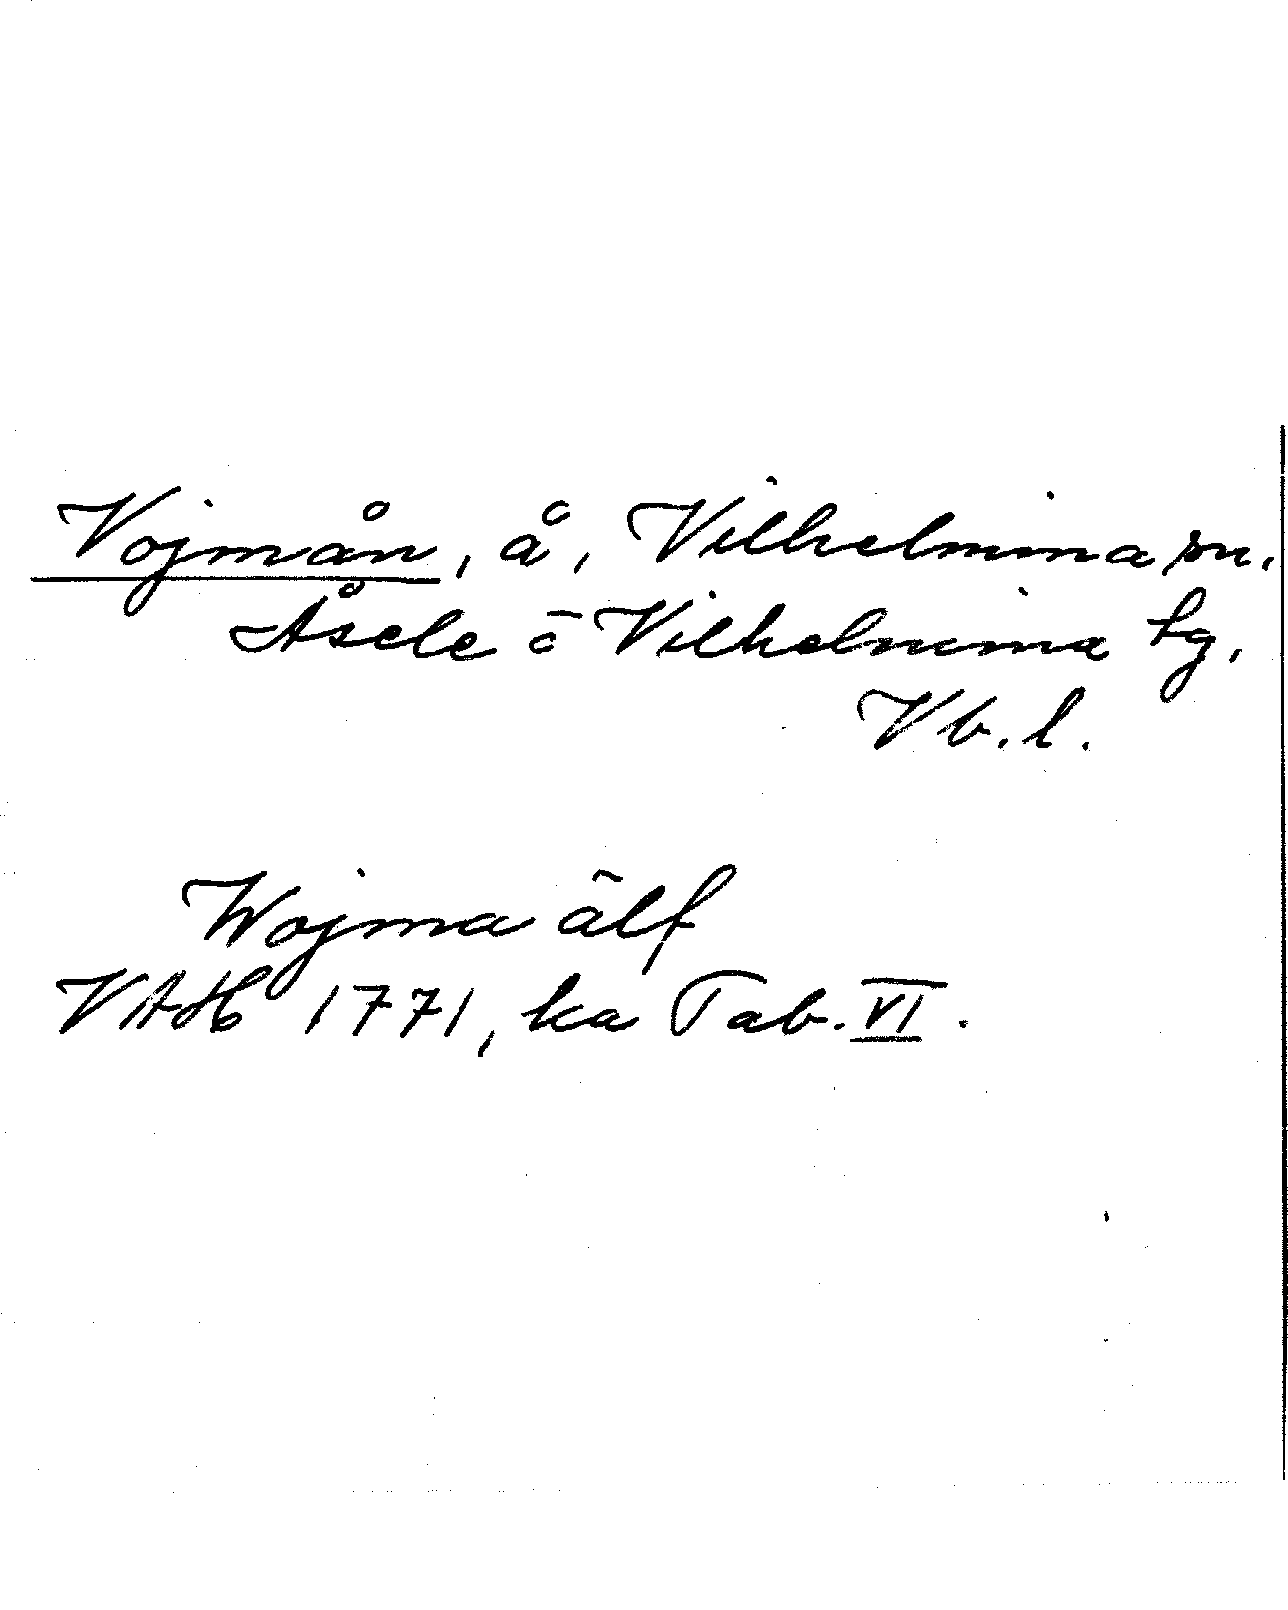 Vojmån, å, Vilhelmina sn.
Åsele o Vilhelmina tg.
Vb. l.
Wojma älf
VAH 1771, ka Tab. VI.